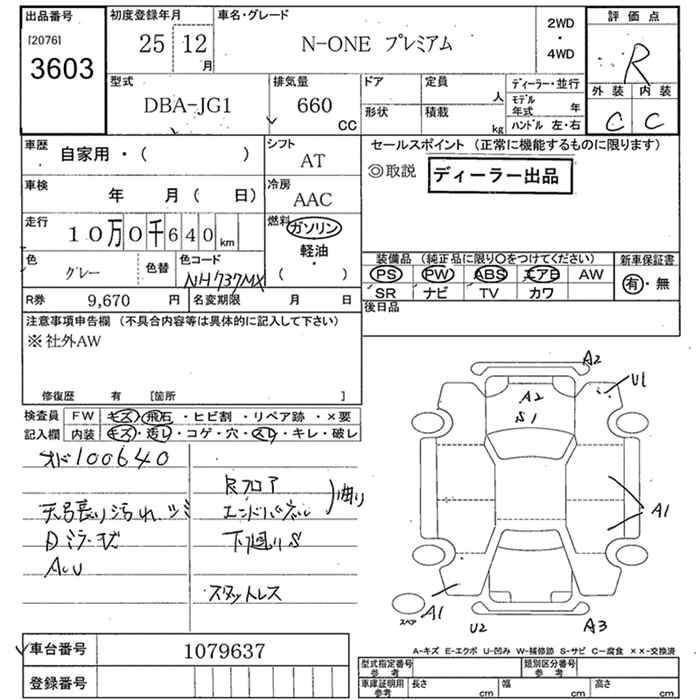 出品番号 初度登録年月 車名・グレード 2WD・4WD 評価点
[2076] 3603 25 12月 N-ONE プレミアム R
型式 排気量 ドア 定員 人 ディーラー・並行 外装 内装
DBA-JG1 660 CC 形状 積載 kg モデル年式 年 ハンドル 左・右 C C
車歴 自家用・( ) シフト AT
セールスポイント (正常に機能するものに限ります)
◎取説 ディーラー出品
車検 年 月 ( 日) 冷房 AAC
走行 10万0千640km 燃料 ガソリン 軽油・( )
色 グレー 色替 色コード NH737MX
装備品 (純正品に限り○をつけてください) 新車保証書
PS PW ABS エアB AW 有・無
SR ナビ TV カワ
R券 9,670 円 名変期限 月 日
後日品
注意事項申告欄 (不具合内容等は具体的に記入して下さい)
※社外AW
修復歴 有 [箇所 ]
検査員 FW キズ・飛石・ヒビ割・リペア跡・×要
記入欄 内装 キズ・汚レ・コゲ・穴・スレ・キレ・破レ
100640
Rフロア
天張り汚れ
エンドパネル
曲り
下廻りS
スタットレス
A2
U1
A2
S1
A1
A1
スペア
U2
A3
A-キズ E-エクボ U-凹み W-補修跡 S-サビ C-腐食 ××-交換済
車台番号 1079637
登録番号
型式指定番号 参考 類別区分番号 参考
車庫証明用 参考 長さ cm 幅 cm 高さ cm